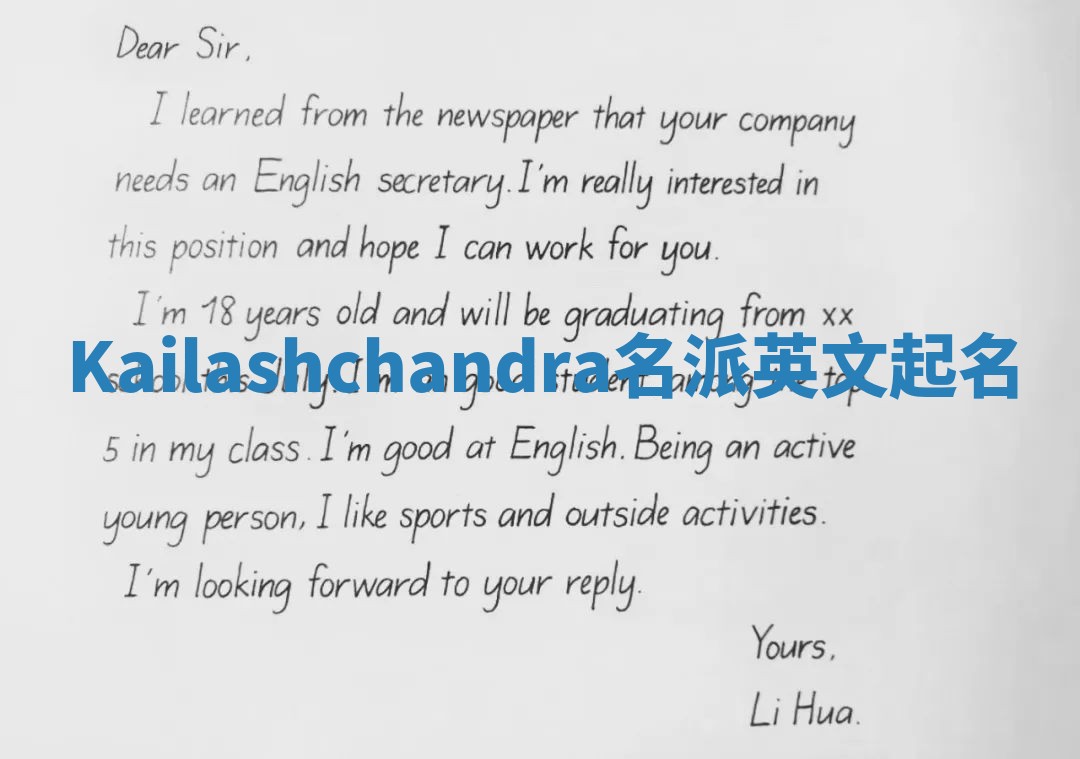 Dear Sir,
I learned from the newspaper that your company
needs an English secretary. I'm really interested in
this position and hope I can work for you.
I'm 18 years old and will be graduating from xx
Kailashchandra名派英文起名
school this July. I'm a good student among the top
5 in my class. I'm good at English. Being an active
young person, I like sports and outside activities.
I'm looking forward to your reply.
Yours,
Li Hua.